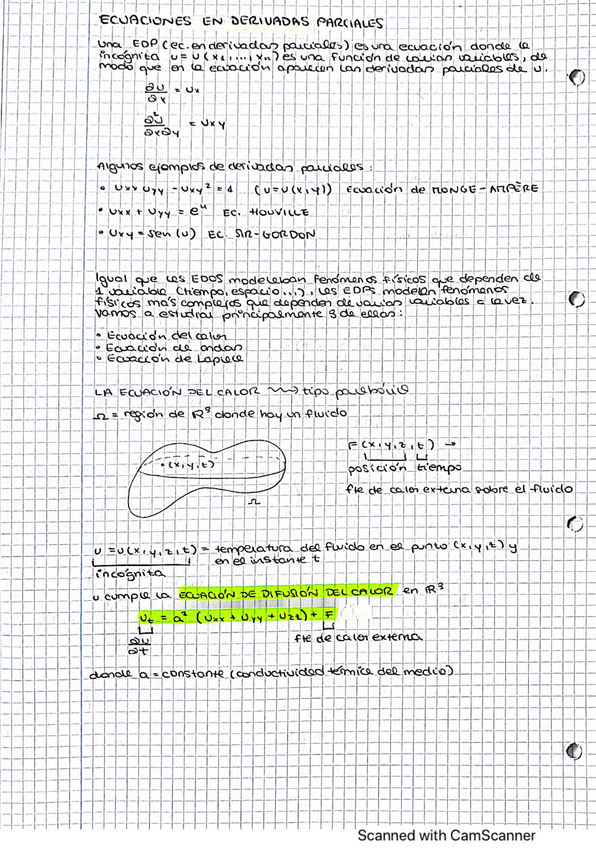 ECUACIONES EN DERIVADAS PARCIALES
Una EDP (ec. en derivadas parciales) es una ecuación donde la
incógnita u = u(x₁,...,xₙ) es una función de varias variables, de
modo que en la ecuación aparecen las derivadas parciales de u.
∂u/∂x = ux
∂²u/∂x∂y = uxy
Algunos ejemplos de derivadas parciales:
• uxx uyy - uxy² = 1 (u=u(x,y)) Ecuación de MONGE-AMPÈRE
• uxx + uyy = eᵘ EC. LIOUVILLE
• uxy = sen(u) EC. SIR-GORDON
Igual que las EDOS modelaban fenómenos físicos que dependen de
1 variable (tiempo, espacio...), las EDPs modelan fenómenos
físicos más complejos que dependen de varias variables a la vez.
Vamos a estudiar principalmente 3 de ellas:
• Ecuación del calor
• Ecuación de ondas
• Ecuación de Laplace
LA ECUACIÓN DEL CALOR ⇝ tipo parabólico
Ω = región de ℝ³ donde hay un fluido
•(x,y,z)
Ω
F(x,y,z,t) →
posición tiempo
fte de calor externa sobre el fluido
u = u(x,y,z,t) = temperatura del fluido en el punto (x,y,z) y
en el instante t
incógnita
u cumple la ECUACIÓN DE DIFUSIÓN DEL CALOR en ℝ³
ut = a² (uxx + uyy + uzz) + F
∂u/∂t
fte de calor externa
donde a = constante (conductividad térmica del medio)
Scanned with CamScanner